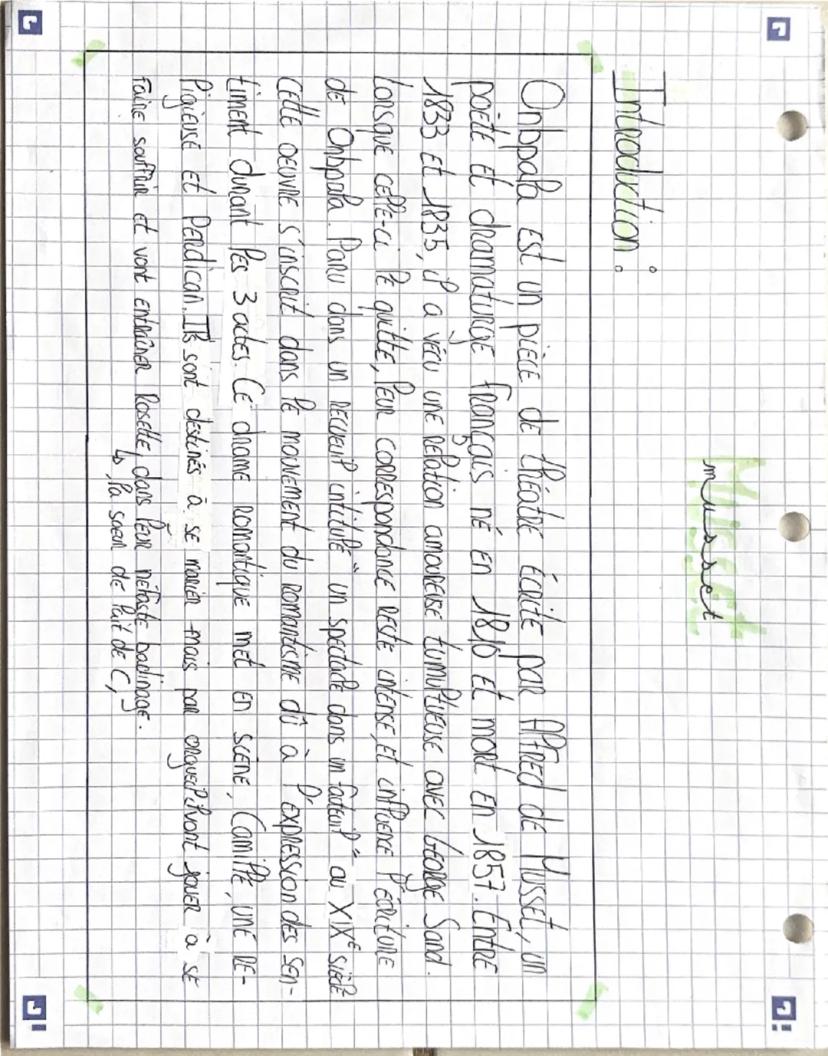 Musset
musset
Introduction:
Onbpala est un pièce de théâtre écrite par Alfred de Musset, un
poète et dramaturge français né en 1810 et mort en 1857. Entre
1833 et 1835, il a vécu une relation amoureuse tumultueuse avec George Sand.
Lorsque celle-ci le quitte, leur correspondance reste intense, et influence l'écriture
de Onbpala. Paru dans un recueil intitulé "un spectacle dans un fauteuil" au XIXe siècle
Cette oeuvre s'inscrit dans le mouvement du romantisme dû à l'expression des sen-
timent durant les 3 actes. Ce drame romantique met en scène, Camille, une re-
ligieuse et Perdican. Ils sont destinés à se marier mais par orgueil, vont jouer à se
faire souffrir et vont entraîner Rosette, dans leur néfaste badinage.
↳ la soeur de lait de C,